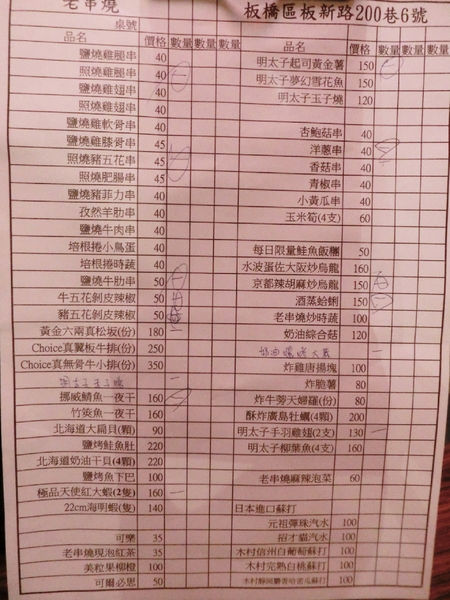 老串燒
板橋區板新路200巷6號
桌號
品名 價格 數量 數量 數量
鹽燒雞腿串 40
照燒雞腿串 40
鹽燒雞翅串 40
照燒雞翅串 40
鹽燒雞軟骨串 40
鹽燒雞膝骨串 45
照燒豬五花串 45
照燒肥腸串 45
鹽燒豬菲力串 40
孜然羊肋串 40
鹽燒牛肉串 40
培根捲小鳥蛋 40
培根捲時蔬 40
鹽燒牛肋串 50
牛五花剝皮辣椒 50
豬五花剝皮辣椒 50
黃金六兩真松坂(份) 180
Choice真翼板牛排(份) 250
Choice真無骨牛小排(份) 350
挪威鯖魚一夜干 160
竹筴魚一夜干 160
北海道大扇貝(顆) 90
鹽烤鮭魚肚 220
北海道奶油干貝(4顆) 220
鹽烤魚下巴 100
極品天使紅大蝦(2隻) 160
22cm海明蝦(隻) 140
可樂 35
老串燒現泡紅茶 35
美粒果柳橙 100
可爾必思 50
品名 價格 數量 數量 數量
明太子起司黃金薯 150
明太子夢幻雪花魚 150
明太子玉子燒 120
杏鮑菇串 40
洋蔥串 40
香菇串 40
青椒串 40
小黃瓜串 40
玉米筍(4支) 60
每日限量鮭魚飯糰 50
水波蛋佐大阪炒烏龍 160
京都辣胡麻炒烏龍 150
酒蒸蛤蜊 150
老串燒炒時蔬 100
奶油綜合菇 120
炸雞唐揚塊 100
炸脆薯 80
炸牛蒡天婦羅(份) 80
酥炸廣島牡蠣(4顆) 200
明太子手羽雞翅(2支) 130
明太子柳葉魚(4支) 160
老串燒麻辣泡菜 60
日本進口蘇打
元祖彈珠汽水 100
招才貓汽水 100
木村信州白葡萄蘇打 100
木村完熟白桃蘇打 100